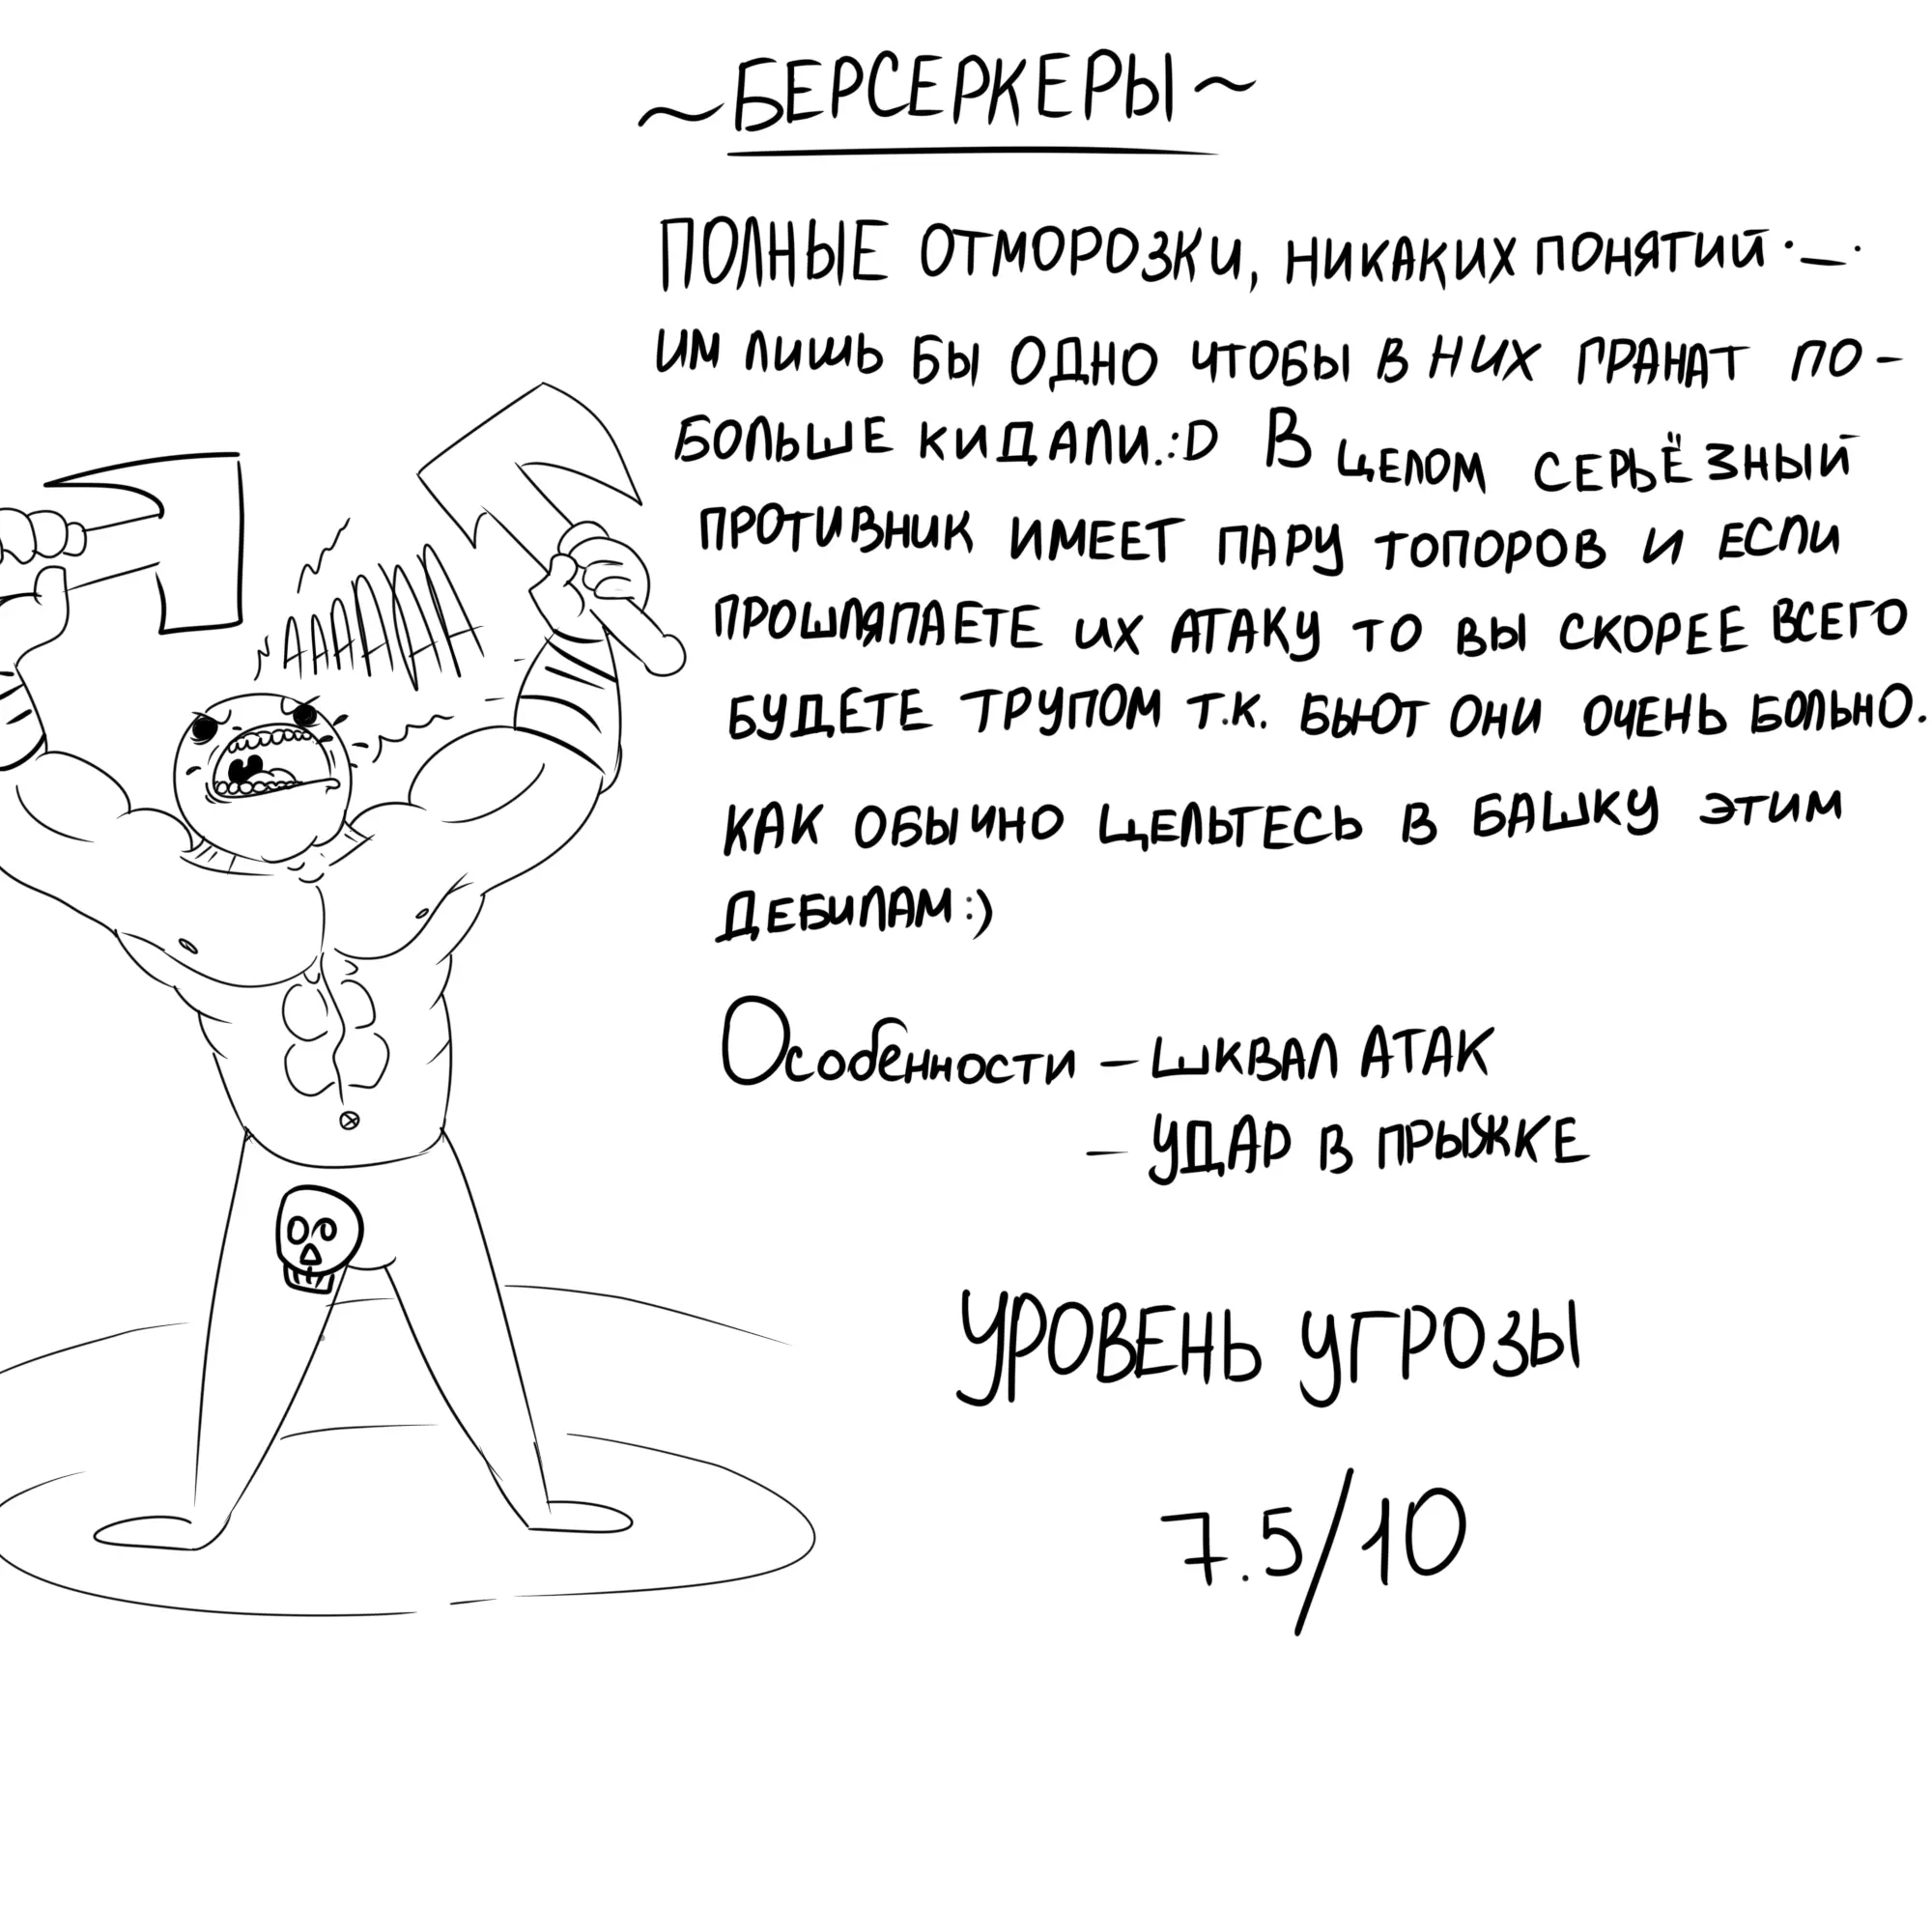 ~БЕРСЕРКЕРЫ~
ПОЛНЫЕ ОТМОРОЗКИ, НИКАКИХ ПОНЯТИЙ ·_·
ИМ ЛИШЬ БЫ ОДНО ЧТОБЫ В НИХ ГРАНАТ ПО-
БОЛЬШЕ КИДАЛИ.:D В ЦЕЛОМ СЕРЬЁЗНЫЙ
ПРОТИВНИК ИМЕЕТ ПАРУ ТОПОРОВ И ЕСЛИ
ПРОШЛЯПАЕТЕ ИХ АТАКУ ТО ВЫ СКОРЕЕ ВСЕГО
БУДЕТЕ ТРУПОМ Т.К. БЬЮТ ОНИ ОЧЕНЬ БОЛЬНО.
КАК ОБЫЧНО ЦЕЛЬТЕСЬ В БАШКУ ЭТИМ
ДЕБИЛАМ:)
ААААААА
Особенности – ШКВАЛ АТАК
– УДАР В ПРЫЖКЕ
УРОВЕНЬ УГРОЗЫ
7.5/10